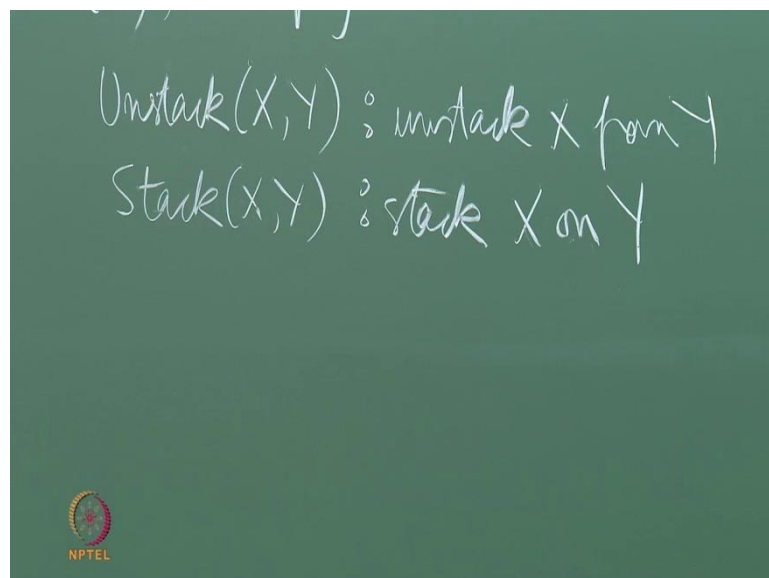 Unstack(X,Y) : unstack X from Y
Stack(X,Y) : stack X on Y
NPTEL